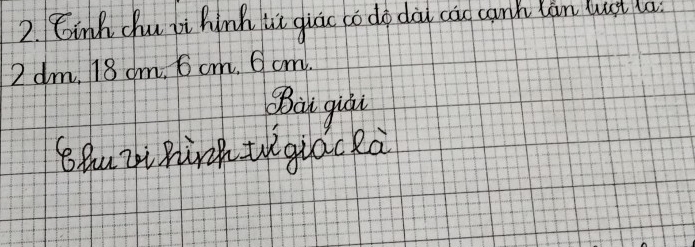 2. Tính chu vi hình tứ giác có độ dài các cạnh lần lượt là:
2 dm, 18 cm, 6 cm, 6 cm.
Bài giải
Chu vi hình tứ giác là